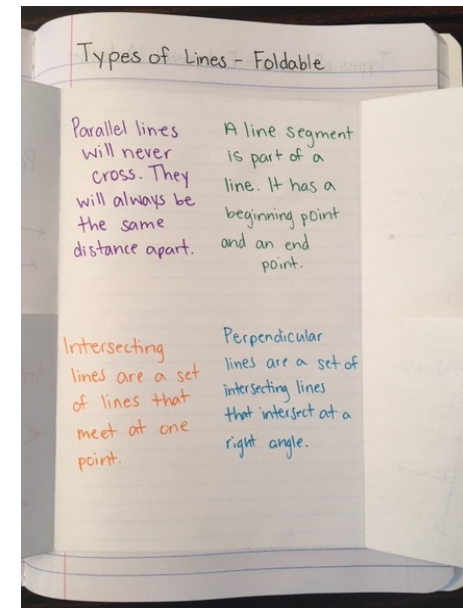 Types of Lines - Foldable
Parallel lines
will never
cross. They
will always be
the same
distance apart.
A line segment
is part of a
line. It has a
beginning point
and an end
point.
Intersecting
lines are a set
of lines that
meet at one
point.
Perpendicular
lines are a set of
intersecting lines
that intersect at a
right angle.